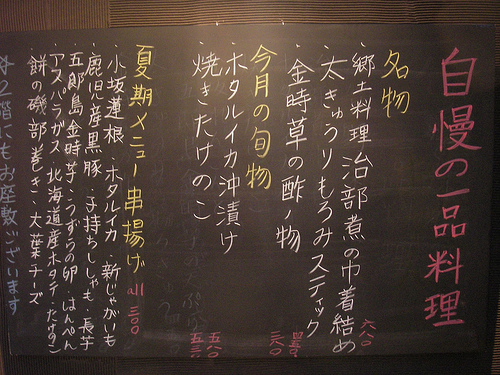 自慢の一品料理
名物
・郷土料理 治部煮の巾着結め 六八〇
・太きゅうりもろみスティック
・金時草の酢ノ物
今月の旬物
・ホタルイカ沖漬け 五八〇
・焼きたけのこ
夏期メニュー串揚げ all 三〇〇
・小坂蓮根 ・ホタルイカ ・新じゃがいも
・鹿児島産黒豚 ・子持ちししゃも ・長芋
五郎島金時芋・うずらの卵 はんぺん
アスパラガス・北海道産ホタテ・たけのこ
・餅の磯部巻き・大葉チーズ
2階にもお座敷ございます